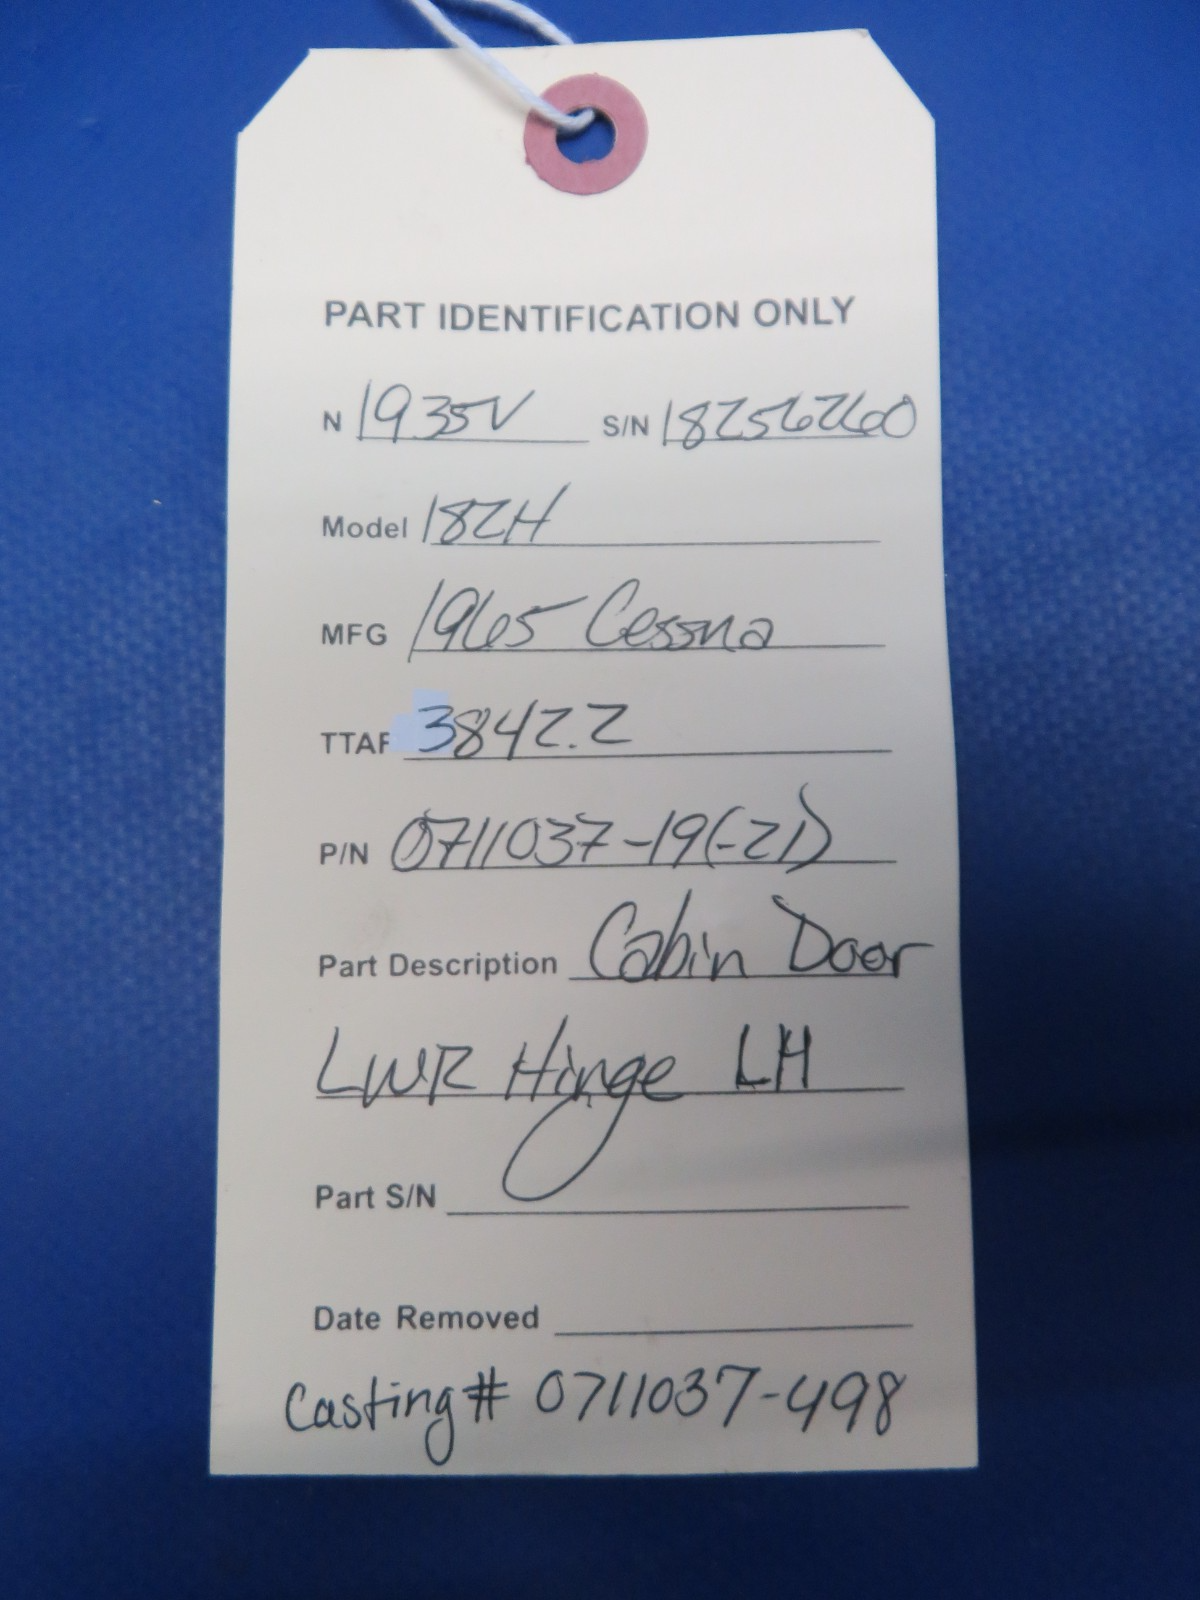 PART IDENTIFICATION ONLY
N 1935V S/N 18256260
Model 182H
MFG 1965 Cessna
TTAF 3842.2
P/N 0711037-19(-21)
Part Description Cabin Door
LWR Hinge LH
Part S/N
Date Removed
Casting# 0711037-498